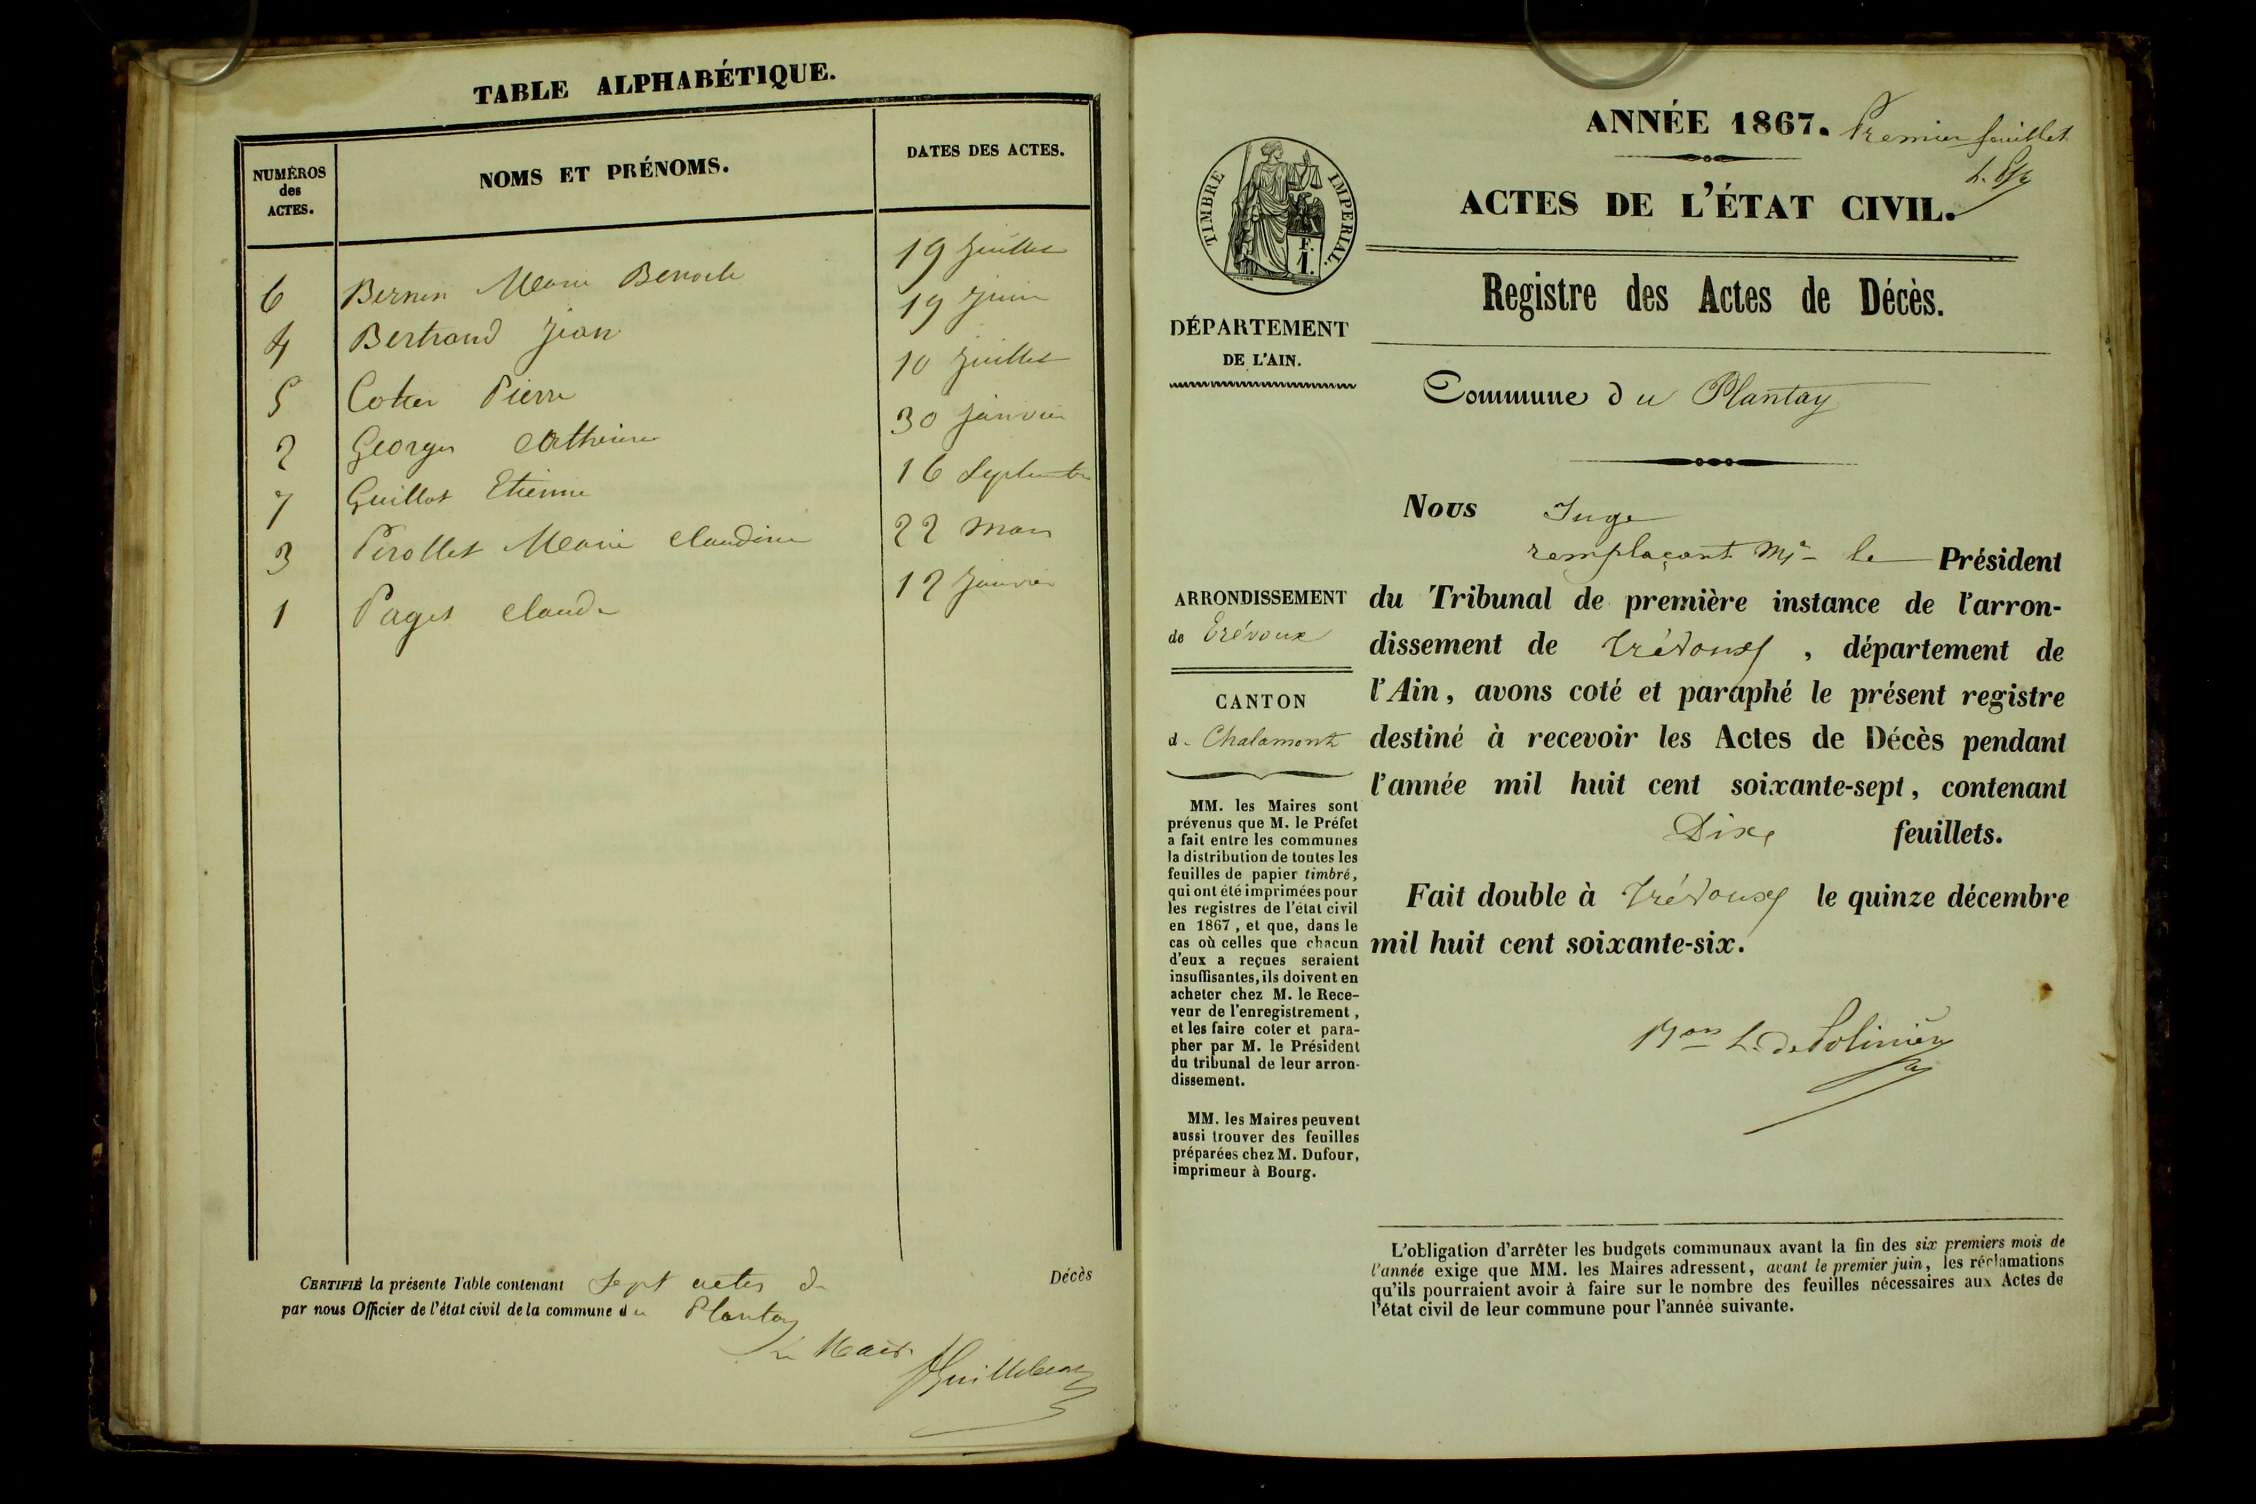 TABLE ALPHABÉTIQUE.
NUMÉROS
des
ACTES.
NOMS ET PRÉNOMS.
DATES DES ACTES.
6 Bernin Marie Benoite 19 Juillet
4 Bertrand Jean 19 Juin
5 Pierre 10 Juillet
2 Georges Catherine 30 Janvier
7 Guillot Etienne 16 Septembre
3 Perollet Marie Claudine 22 Mars
1 Paget Claude 12 Janvier
CERTIFIÉ la présente Table contenant Sept actes de Décès
par nous Officier de l'état civil de la commune du Plantay
Le Maire
ANNÉE 1867. Premier feuillet
ACTES DE L'ÉTAT CIVIL.
TIMBRE IMPERIAL.
Registre des Actes de Décès.
DÉPARTEMENT
DE L'AIN.
Commune du Plantay
ARRONDISSEMENT
de Trévoux
CANTON
de Chalamont
MM. les Maires sont
prévenus que M. le Préfet
a fait entre les communes
la distribution de toutes les
feuilles de papier timbré,
qui ont été imprimées pour
les registres de l'état civil
en 1867, et que, dans le
cas où celles que chacun
d'eux a reçues seraient
insuffisantes, ils doivent en
acheter chez M. le Rece-
veur de l'enregistrement,
et les faire coter et para-
pher par M. le Président
du tribunal de leur arron-
dissement.
MM. les Maires peuvent
aussi trouver des feuilles
préparées chez M. Dufour,
imprimeur à Bourg.
Nous Juge
remplaçant Mr le Président
du Tribunal de première instance de l'arron-
dissement de Trévoux, département de
l'Ain, avons coté et paraphé le présent registre
destiné à recevoir les Actes de Décès pendant
l'année mil huit cent soixante-sept, contenant
Dix feuillets.
Fait double à Trévoux le quinze décembre
mil huit cent soixante-six.
L'obligation d'arrêter les budgets communaux avant la fin des six premiers mois de
l'année exige que MM. les Maires adressent, avant le premier juin, les réclamations
qu'ils pourraient avoir à faire sur le nombre des feuilles nécessaires aux Actes de
l'état civil de leur commune pour l'année suivante.